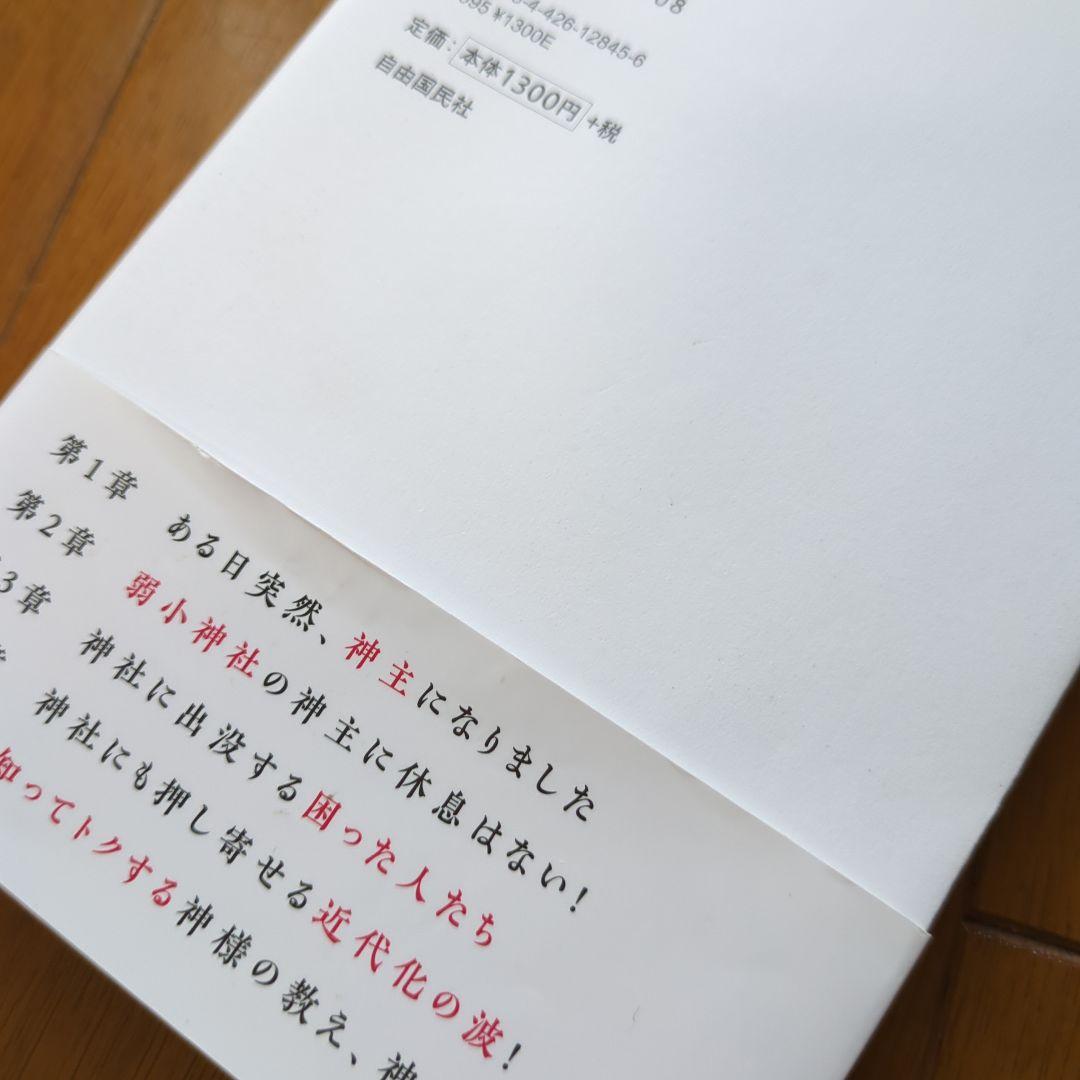 08
3-4-426-12845-6
095 ¥1300E
定価：本体1300円+税
自由国民社
第1章 ある日突然、神主になりました
第2章 弱小神社の神主に休息はない！
3章 神社に出没する困った人たち
神社にも押し寄せる近代化の波！
知ってトクする神様の教え、神